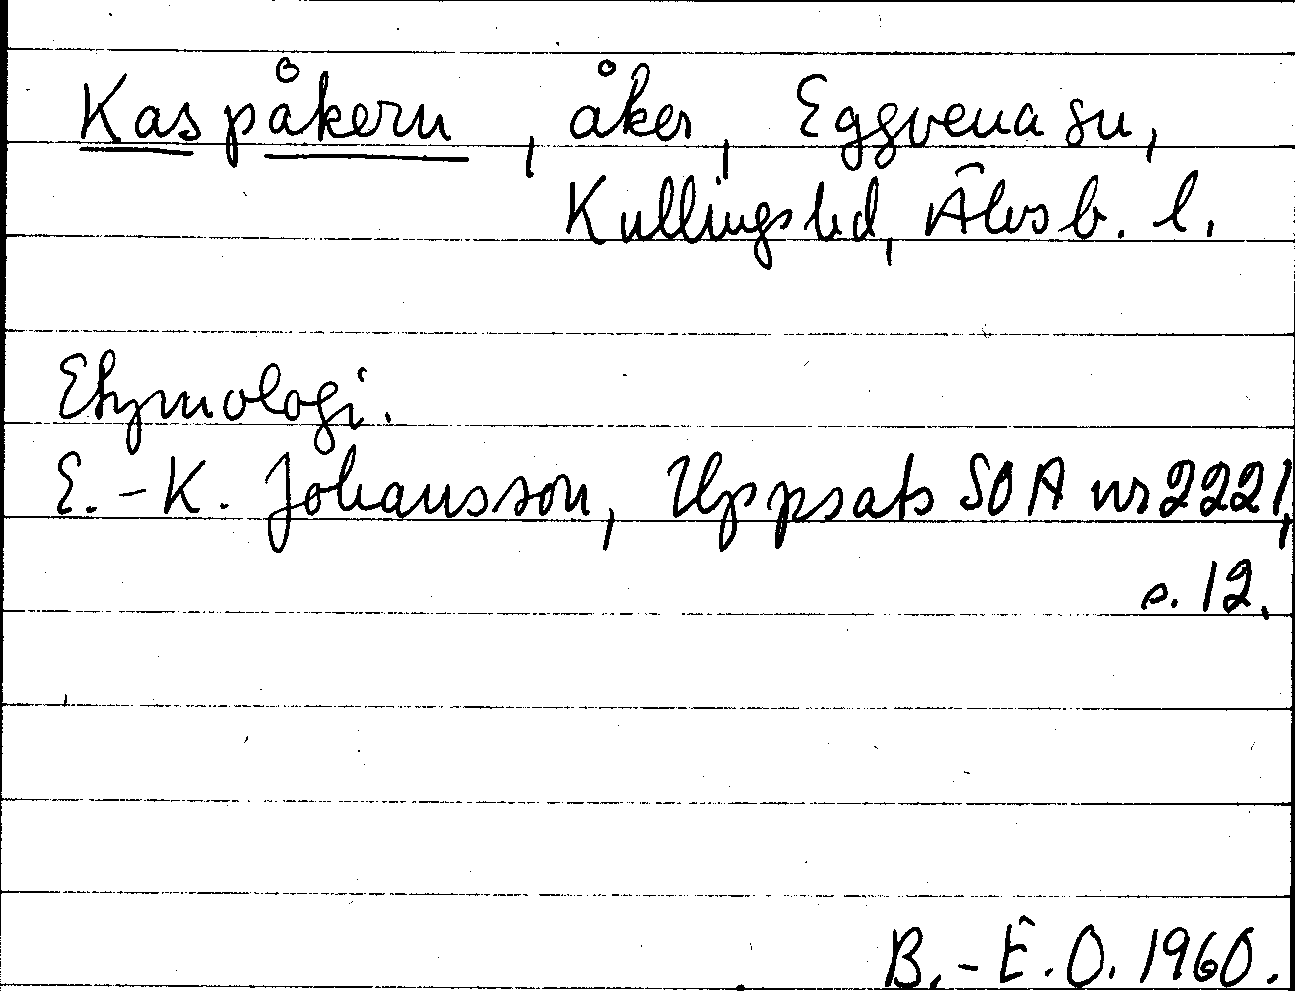 Kaspåkern, åker, Eggvena sn,
Kullings hd, Älvsb. l.
Etymologi.
E.-K. Johansson, Uppsats SOA nr 2221,
s. 12.
B.-E. O. 1960.